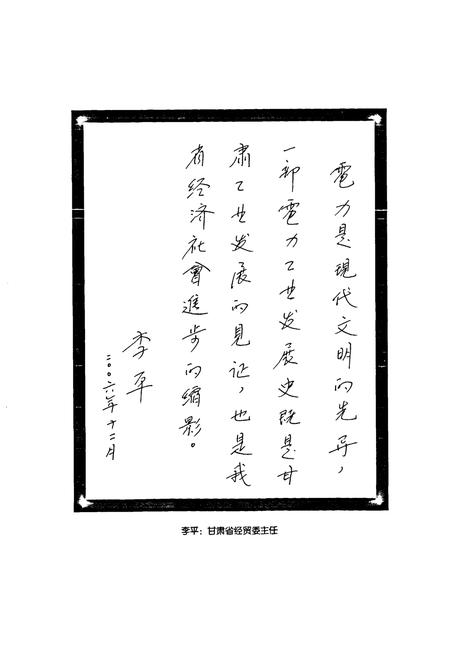 電力是現代文明的先导，
一部電力工业发展史既是甘
肃工业发展的見证，也是我
省经济社會進步的缩影。
李平
二〇〇六年十二月
李平：甘肃省经贸委主任